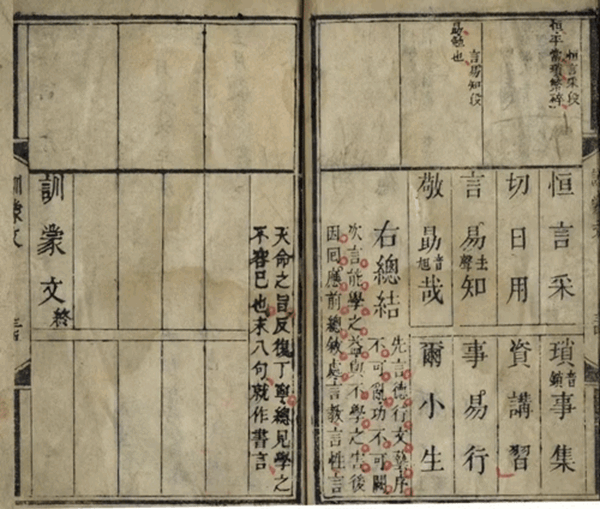 恒言采段
恒平常瑣繁碎
言易知段
勗勉也
恒言采瑣音鎖事集
切日用資講習
言易去聲知事易行
敬勗音旭哉爾小生
右總結先言德行文藝序
不可功不可闕
次言能學之益與不學之害後
因囘應前總敘處言教言性言
天命之旨反復丁寧總見學之
不容已也末八句就作書言
訓蒙文終
訓蒙文